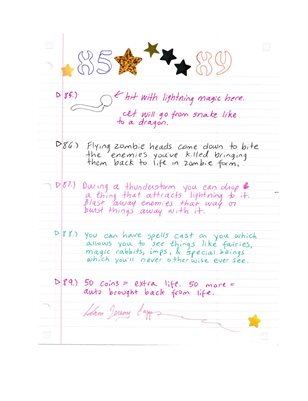 85 89
85.) hit with lightning magic here.
it will go from snake like
to a dragon.
86.) Flying zombie heads come down to bite
the enemies you've killed bringing
them back to life in zombie form.
87.) During a thunderstorm you can drop
a thing that attracts lightning to it.
Blast away enemies that way or
bust things away with it.
88.) You can have spells cast on you which
allows you to see things like fairies,
magic rabbits, imps, & special beings
which you'll never otherwise ever see.
89.) 50 coins = extra life. 50 more =
auto brought back from life.